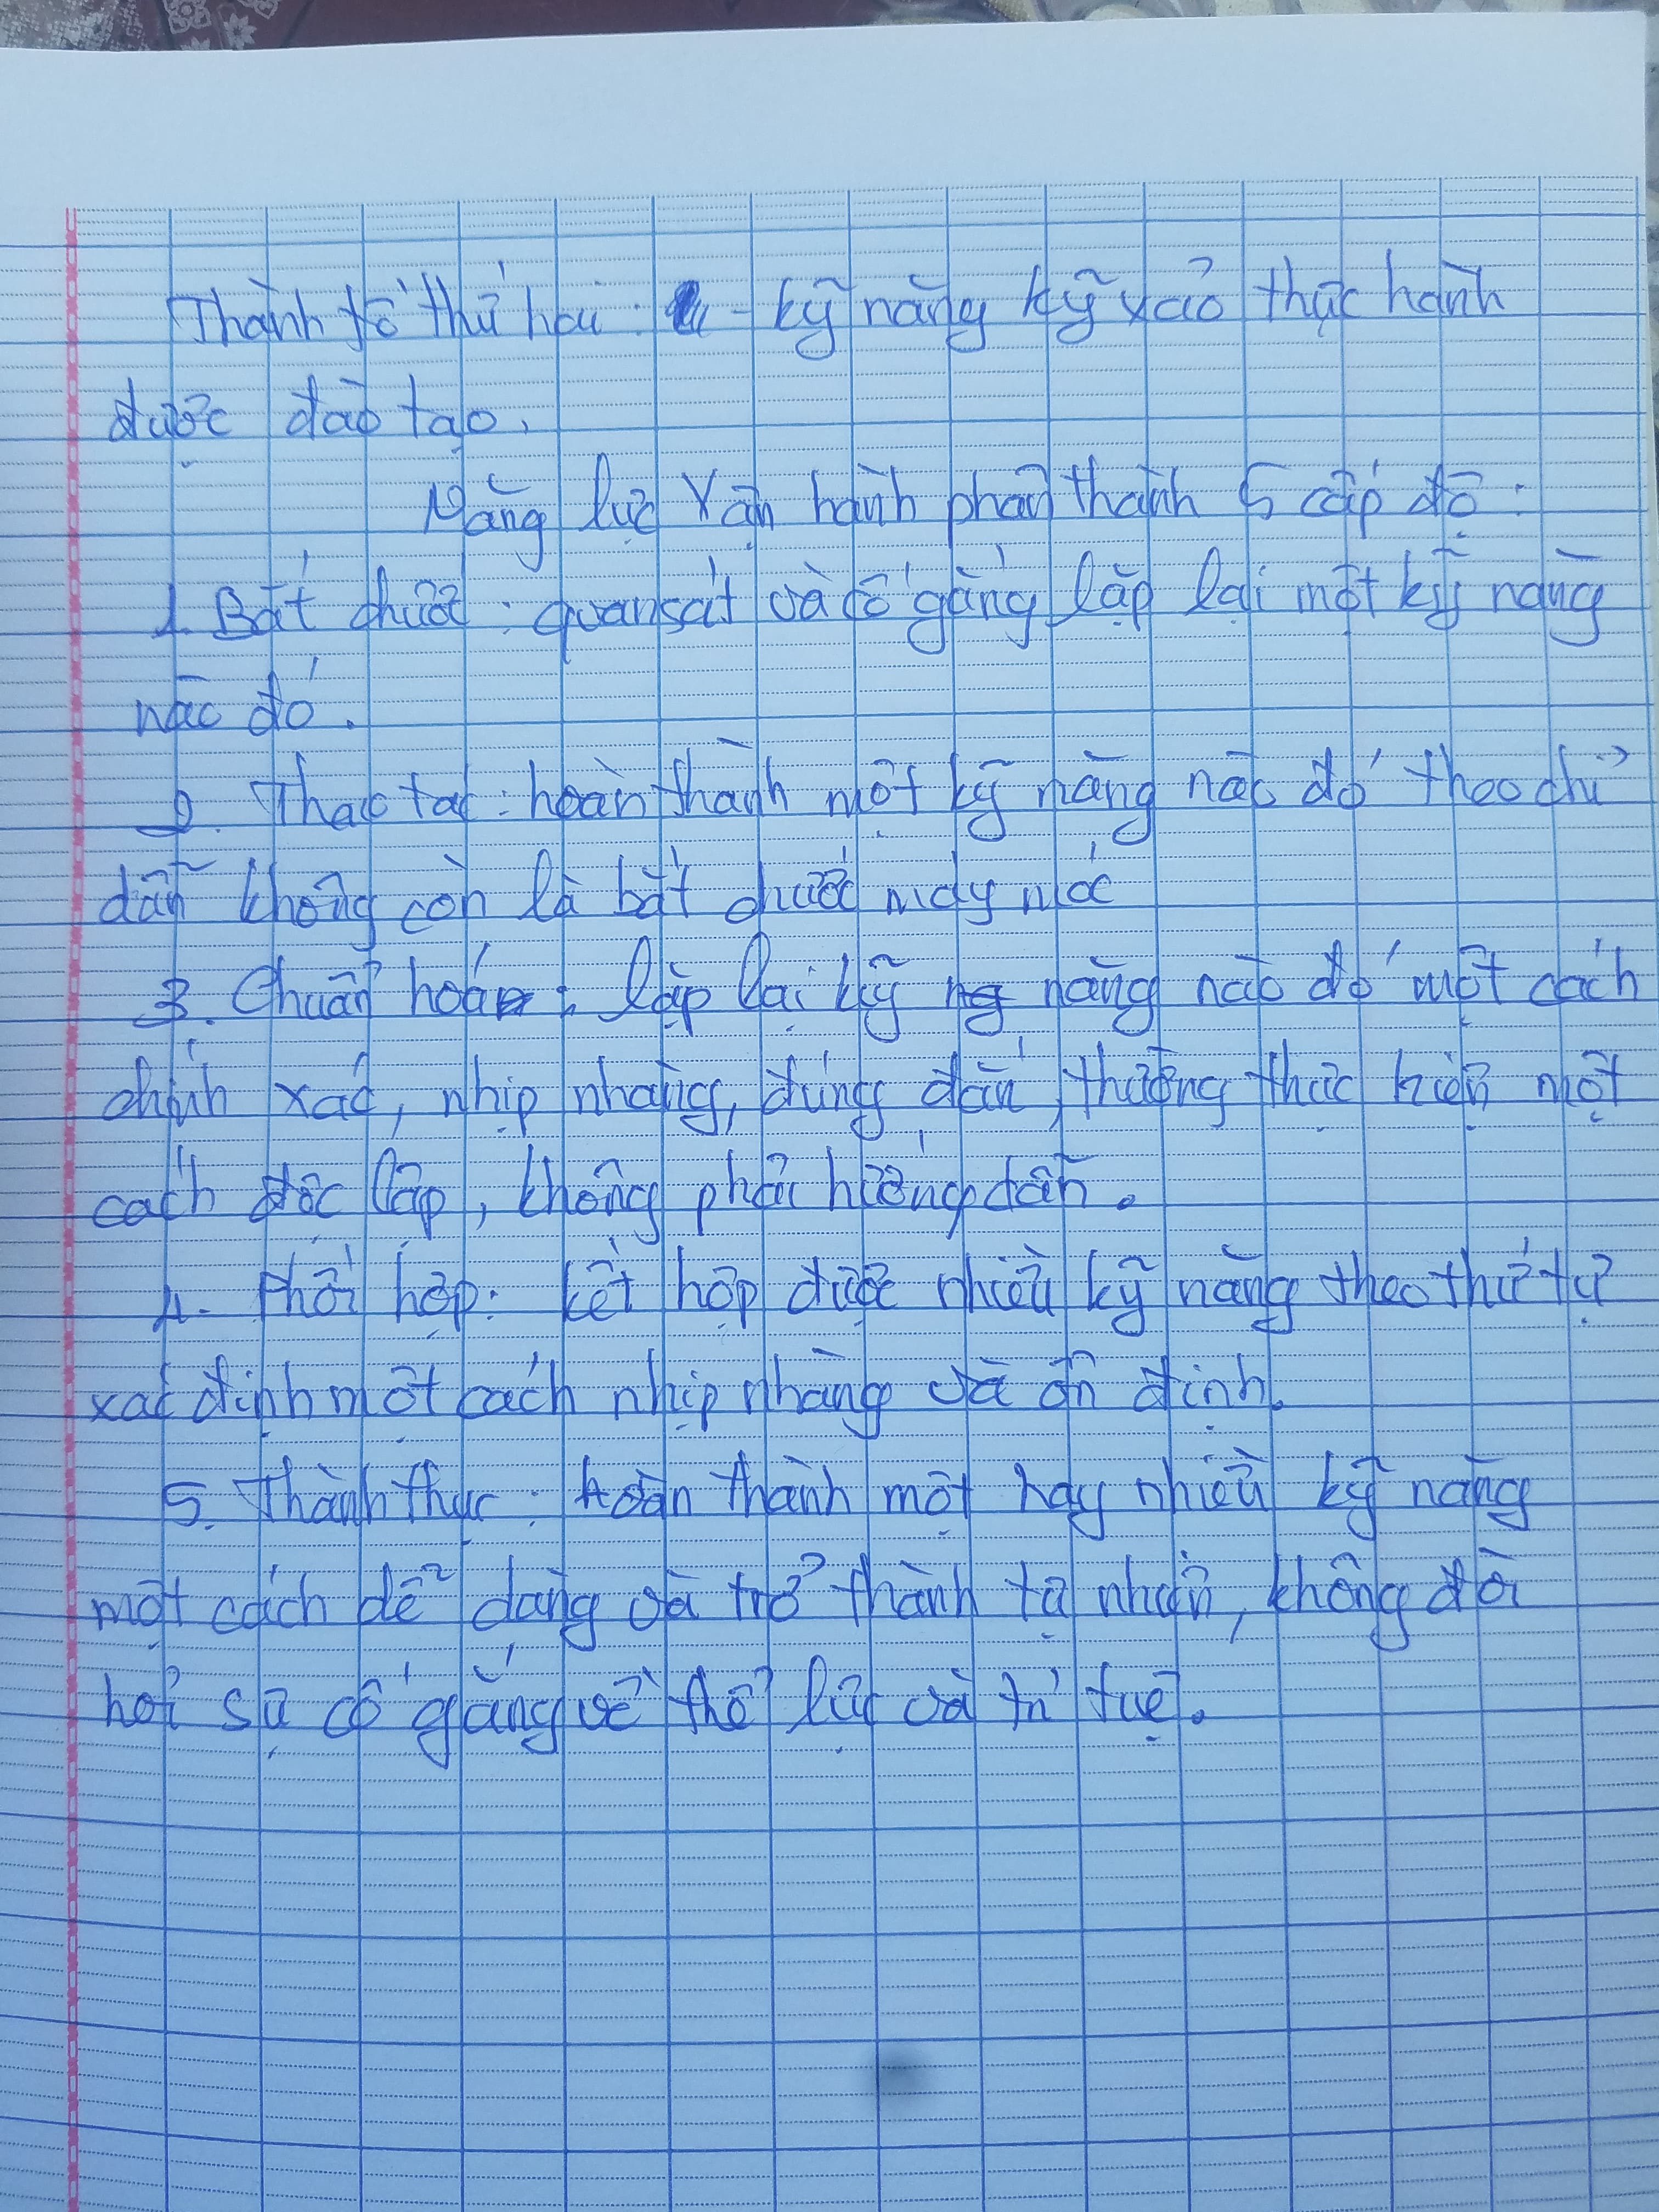 Thành tố thứ hai : - kỹ năng kỹ xảo thực hành
được đào tạo.
Năng lực Vận hành phân thành 5 cấp độ :
1. Bắt chước : quan sát và cố gắng lặp lại một kỹ năng
nào đó.
2. Thao tác : hoàn thành một kỹ năng nào đó theo chỉ
dẫn không còn là bắt chước máy móc
3. Chuẩn hoá : lặp lại kỹ năng nào đó một cách
chính xác, nhịp nhàng, đúng đắn, thường thực hiện một
cách độc lập, không phải hướng dẫn.
4. Phối hợp : kết hợp được nhiều kỹ năng theo thứ tự
xác định một cách nhịp nhàng và ổn định.
5. Thành thục : hoàn thành một hay nhiều kỹ năng
một cách dễ dàng và trở thành tự nhiên, không đòi
hỏi sự cố gắng về thể lực và trí tuệ.